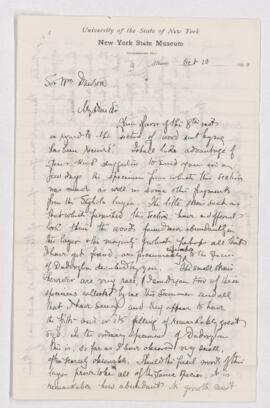 University of the State of New York
New York State Museum
Albany Oct 10
Sir Wm Dawson
My Dear Sir
Your favor of the 8th inst
in regard to the section of wood and lignite
has been received. I shall take advantage of
your kind suggestion to send you in a
few days the specimen from which this section
was made as well as some other fragments
from the Styliola layer. The little stems such as
that which furnished the section have a different
look from the woods found more abundantly in
this layer the majority of which perhaps all that
I have yet found, are presumably to the species
of Dadoxylon described by you. The small stems
however are very rare, I send you two of these
specimens collected by me this summer and all
that I have seen, and they appear to have
the pith and or its filling of remarkably great
size. In the ordinary specimens of Dadoxylon
this is, so far as I have observed very small,
often scarcely observable. Should the fossil woods of this
layer prove to be all of the same species, it is
remarkable how abundant its growth must